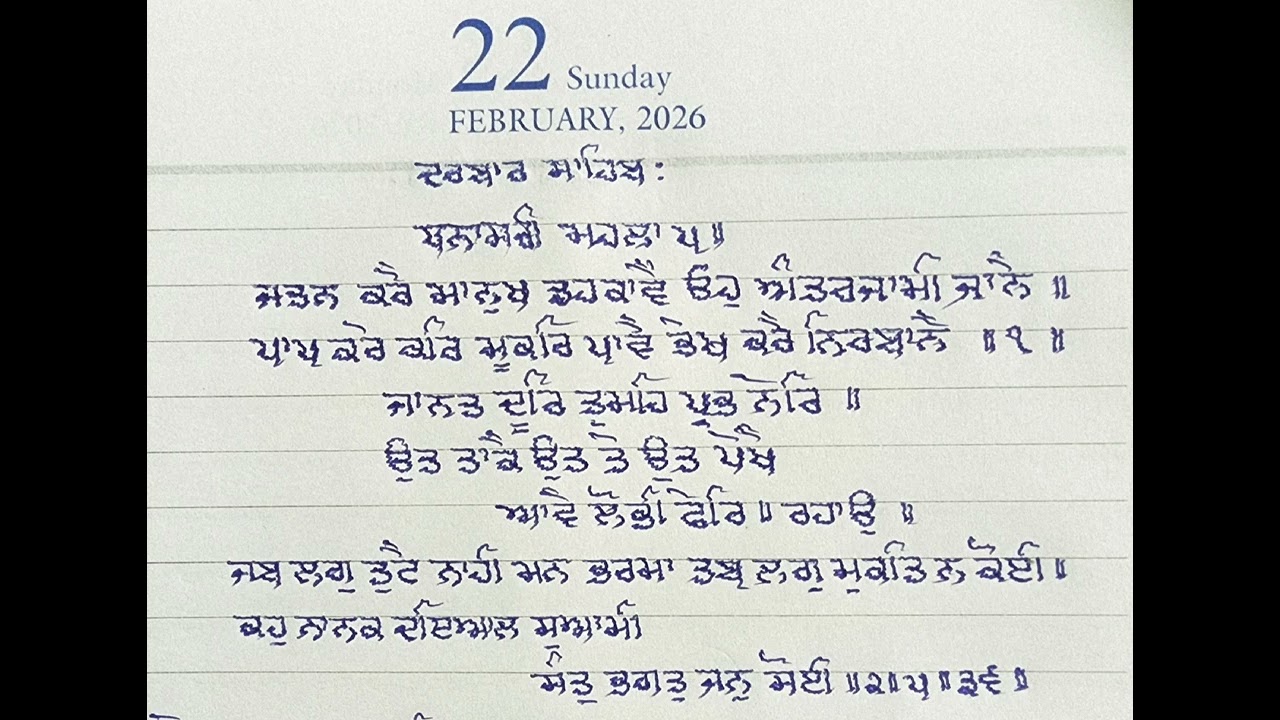 22 Sunday
FEBRUARY, 2026
ਦਰਬਾਰ ਸਾਹਿਬ:
ਧਨਾਸਰੀ ਮਹਲਾ ੫॥
ਜਤਨ ਕਰੈ ਮਾਨੁਖ ਡਹਕਾਵੈ ਓਹੁ ਅੰਤਰਜਾਮੀ ਜਾਨੈ ॥
ਪਾਪ ਕਰੇ ਕਰਿ ਮੂਕਰਿ ਪਾਵੈ ਭੇਖ ਕਰੈ ਨਿਰਬਾਨੈ ॥੧॥
ਜਾਨਤ ਦੂਰਿ ਤੁਮਹਿ ਪ੍ਰਭ ਨੇਰਿ ॥
ਉਤ ਤਾਕੈ ਉਤ ਤੇ ਉਤ ਪੇਖੈ
ਆਵੈ ਲੋਭੀ ਫੇਰਿ ॥ ਰਹਾਉ ॥
ਜਬ ਲਗੁ ਤੁਟੈ ਨਾਹੀ ਮਨ ਭਰਮਾ ਤਬ ਲਗੁ ਮੁਕਤਿ ਨ ਕੋਈ॥
ਕਹੁ ਨਾਨਕ ਦਇਆਲ ਸੁਆਮੀ
ਸੰਤੁ ਭਗਤੁ ਜਨੁ ਸੋਈ ॥੨॥੫॥੩੬॥